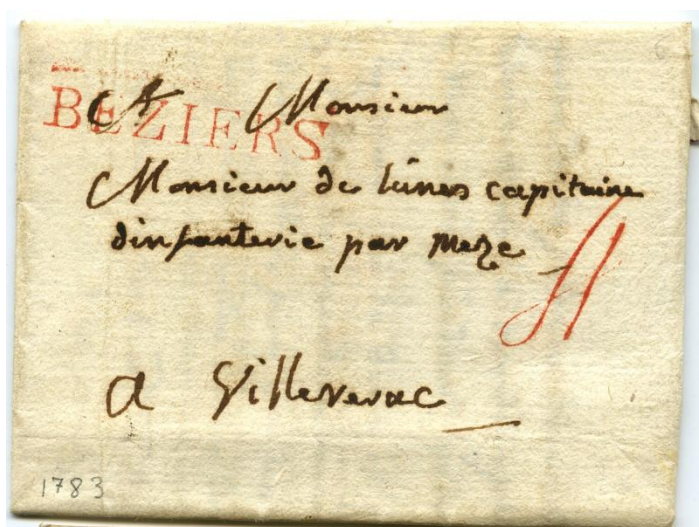 BEZIERS
A Monsieur
Monsieur de lunes capitaine
dinfanterie par meze
a Villeverac
1783